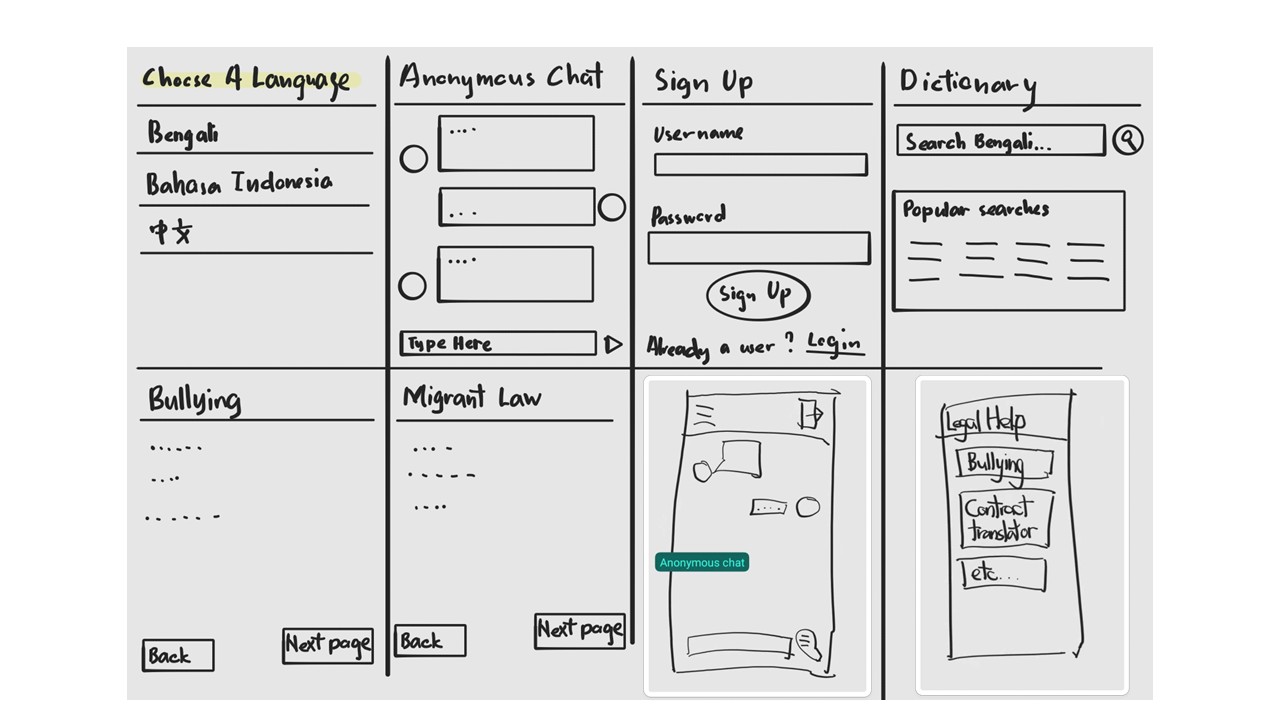 Choose A Language
Bengali
Bahasa Indonesia
中文
Anonymous Chat
....
...
....
Type Here
Sign Up
Username
Password
Sign Up
Already a user? Login
Dictionary
Search Bengali...
Popular searches
Bullying
Back
Next page
Migrant Law
Back
Next page
....
Anonymous chat
Legal Help
Bullying
Contract
translator
etc...